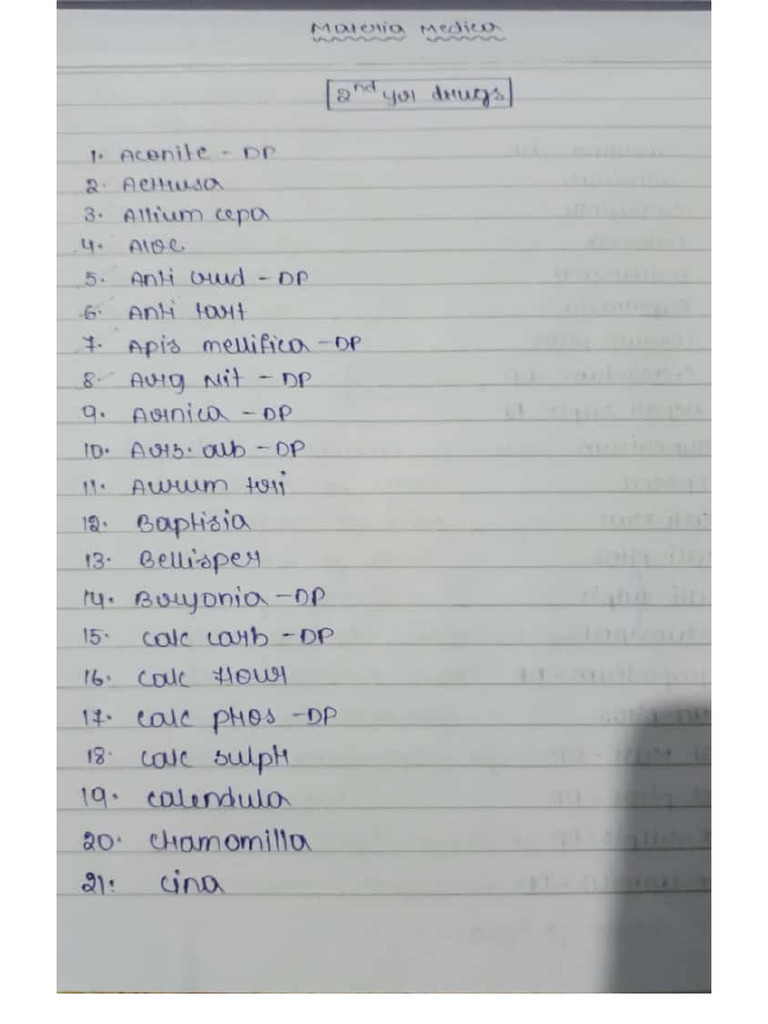 Materia Medica
2nd yr drugs
1. Aconite - DP
2. Aethusa
3. Allium cepa
4. Aloe
5. Anti crud - DP
6. Anti tart
7. Apis mellifica - DP
8. Arg Nit - DP
9. Arnica - DP
10. Ars. alb - DP
11. Aurum tri
12. Baptisia
13. Bellisper
14. Bryonia - DP
15. Calc carb - DP
16. Calc flour
17. Calc phos - DP
18. Calc sulph
19. Calendula
20. Chamomilla
21. Cina